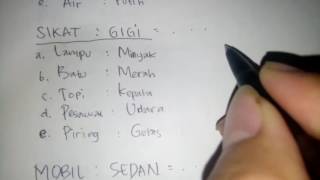 e. Air : Putih
SIKAT : GIGI = . . . .
a. Lampu : Minyak
b. Batu : Merah
c. Topi : Kepala
d. Pesawat : Udara
e. Piring : Gelas
MOBIL : SEDAN = .